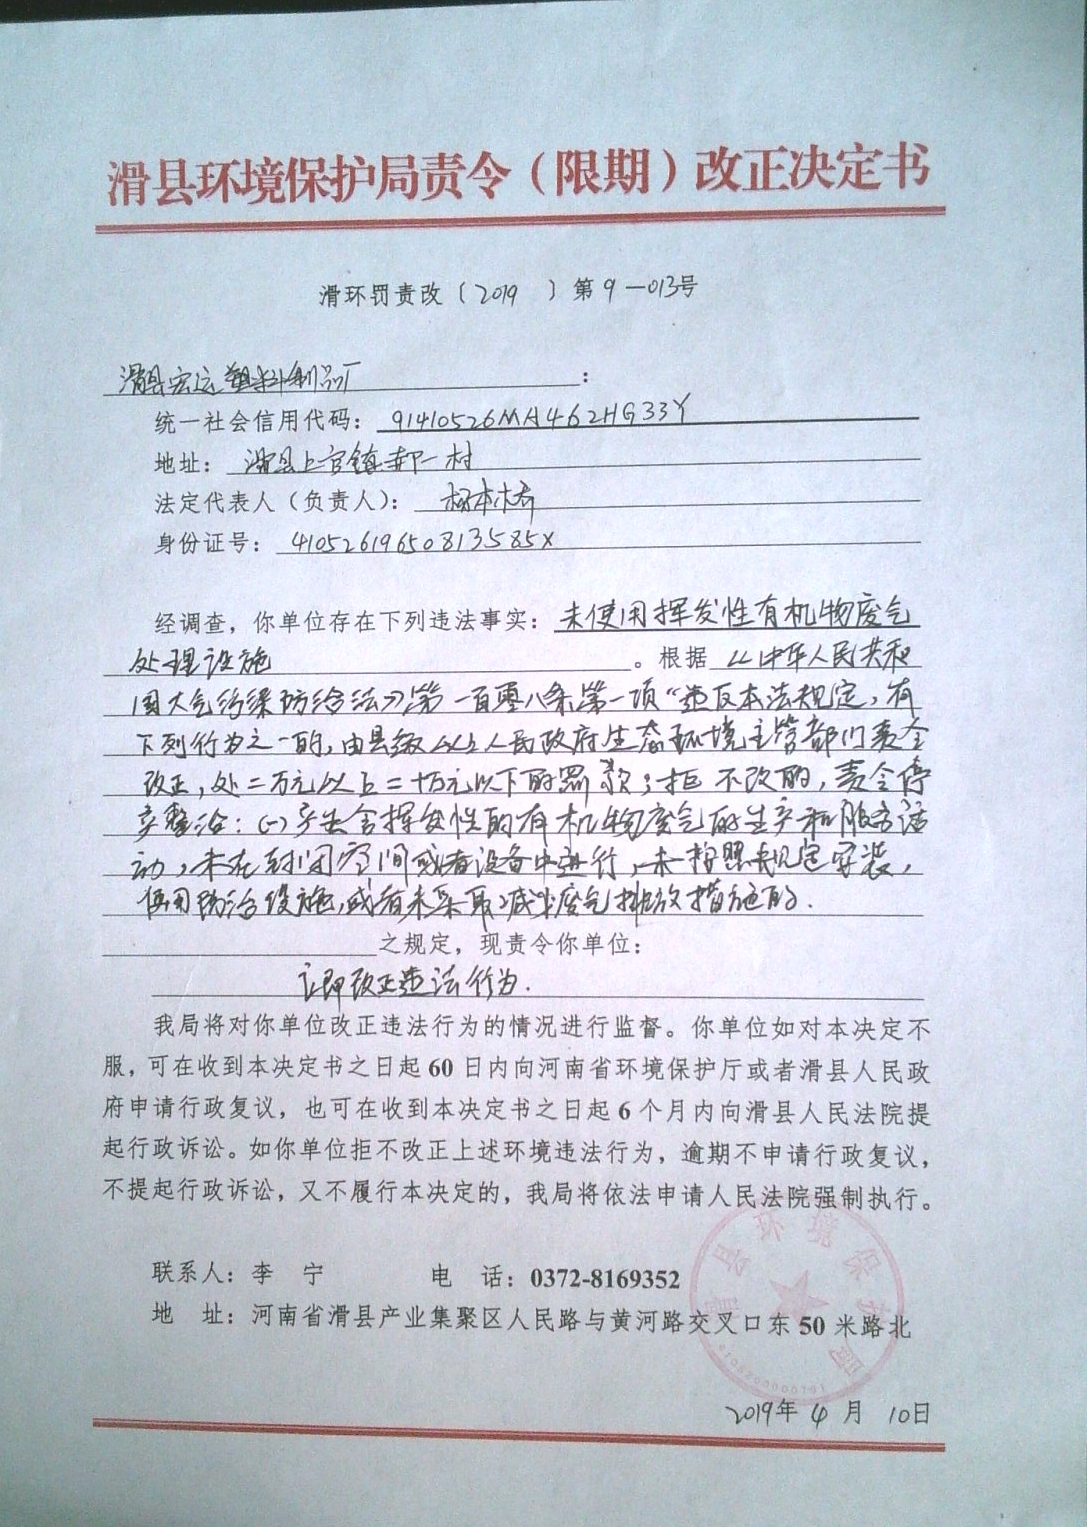 滑县环境保护局责令（限期）改正决定书
滑环罚责改（2019 ）第9—013号
滑县宏运塑料制品厂：
统一社会信用代码：91410526MA462HG33Y
地址：滑县上官镇郝一村
法定代表人（负责人）：杨本
身份证号：41052619650813585X
经调查，你单位存在下列违法事实：未使用挥发性有机物废气
处理设施。根据《中华人民共和
国大气污染防治法》第一百零八条第一项“违反本法规定，有
下列行为之一的，由县级以上人民政府生态环境主管部门责令
改正，处二万元以上二十万元以下的罚款；拒不改的，责令停
产整治：（一）产生含挥发性的有机物废气的生产和服务活
动，未在封闭空间或者设备中进行，未按照规定安装，
使用防治设施，或者未采取减少废气排放措施的.
之规定，现责令你单位：
立即改正违法行为.
我局将对你单位改正违法行为的情况进行监督。你单位如对本决定不
服，可在收到本决定书之日起60日内向河南省环境保护厅或者滑县人民政
府申请行政复议，也可在收到本决定书之日起6个月内向滑县人民法院提
起行政诉讼。如你单位拒不改正上述环境违法行为，逾期不申请行政复议，
不提起行政诉讼，又不履行本决定的，我局将依法申请人民法院强制执行。
联系人：李 宁 电 话：0372-8169352
地 址：河南省滑县产业集聚区人民路与黄河路交叉口东50米路北
滑县环境保护局
2019年4月10日